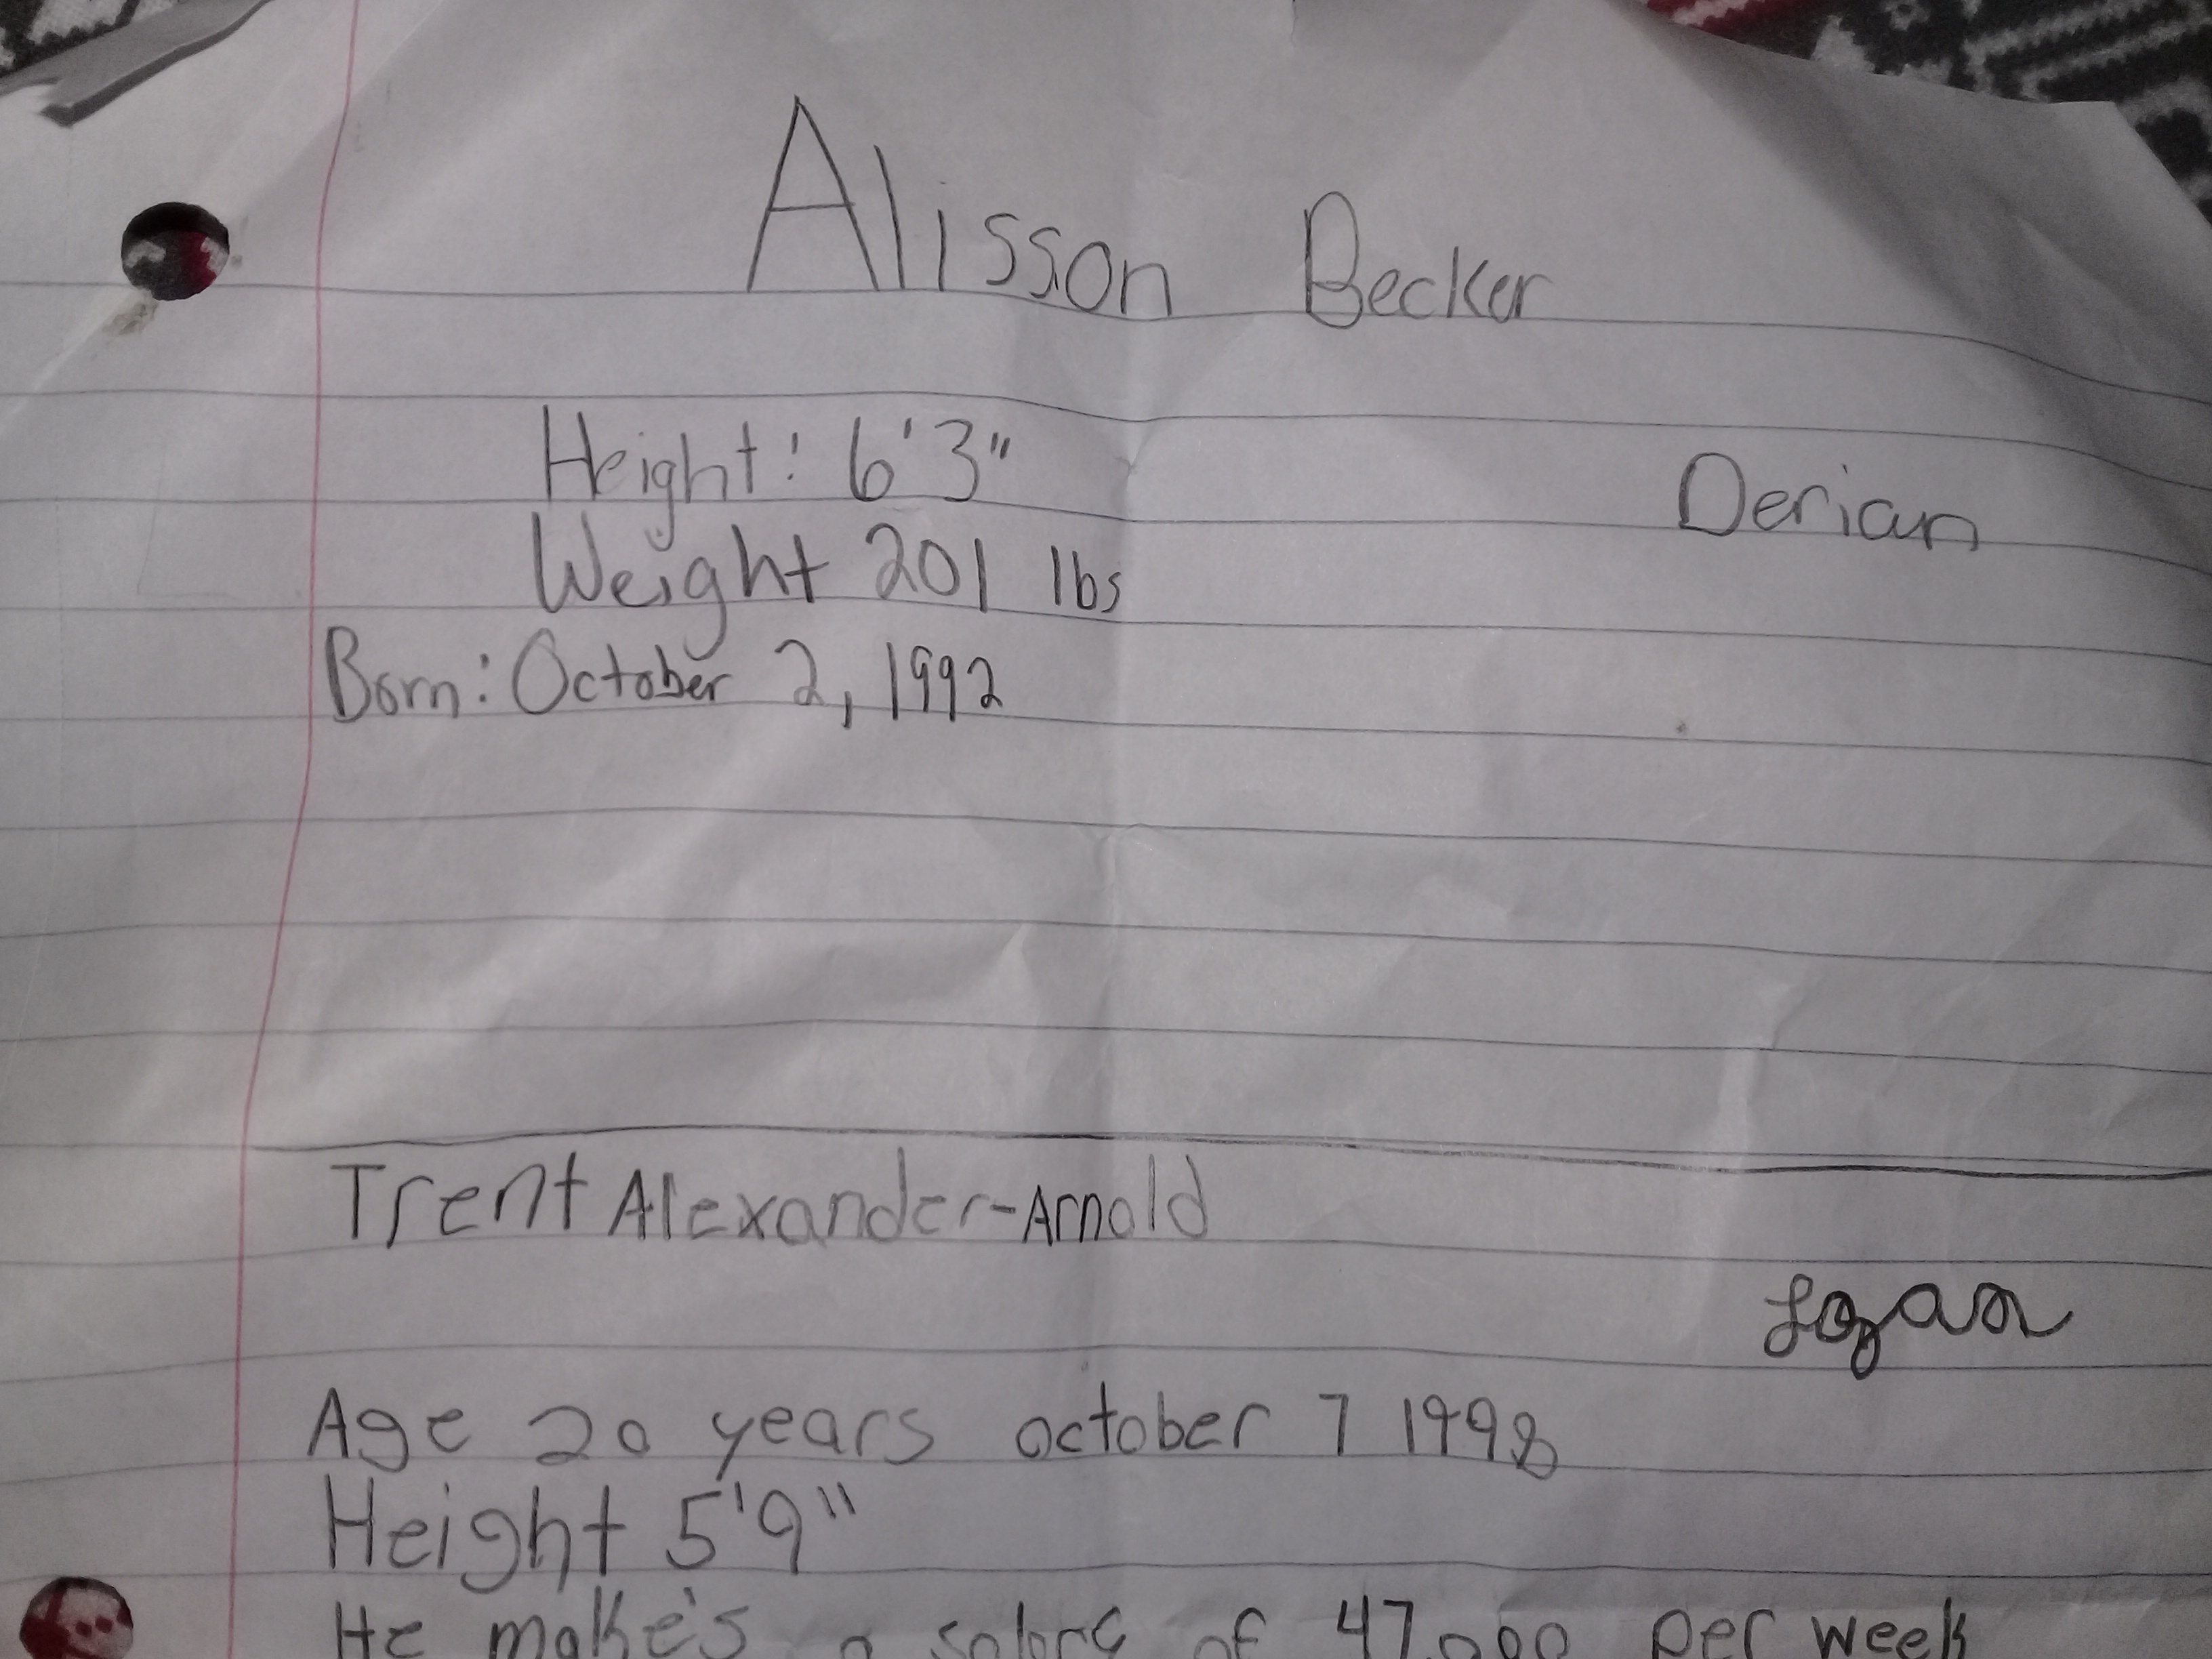 Alisson Becker
Height: 6'3"
Derian
Weight 201 lbs
Born: October 2, 1992
Trent Alexander-Arnold
Logan
Age 20 years october 7 1998
Height 5'9"
He make's a of 47,000 per week